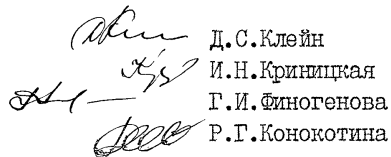 Д.С.Клейн
И.Н.Криницкая
Г.И.Финогенова
Р.Г.Конокотина